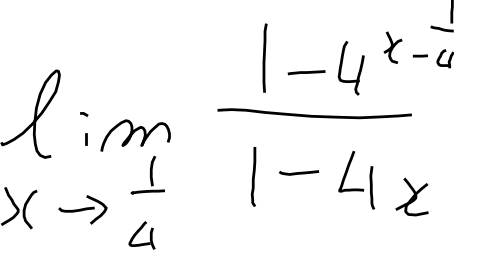 lim x→1/4 (1-4^(x-1/4))/(1-4x)